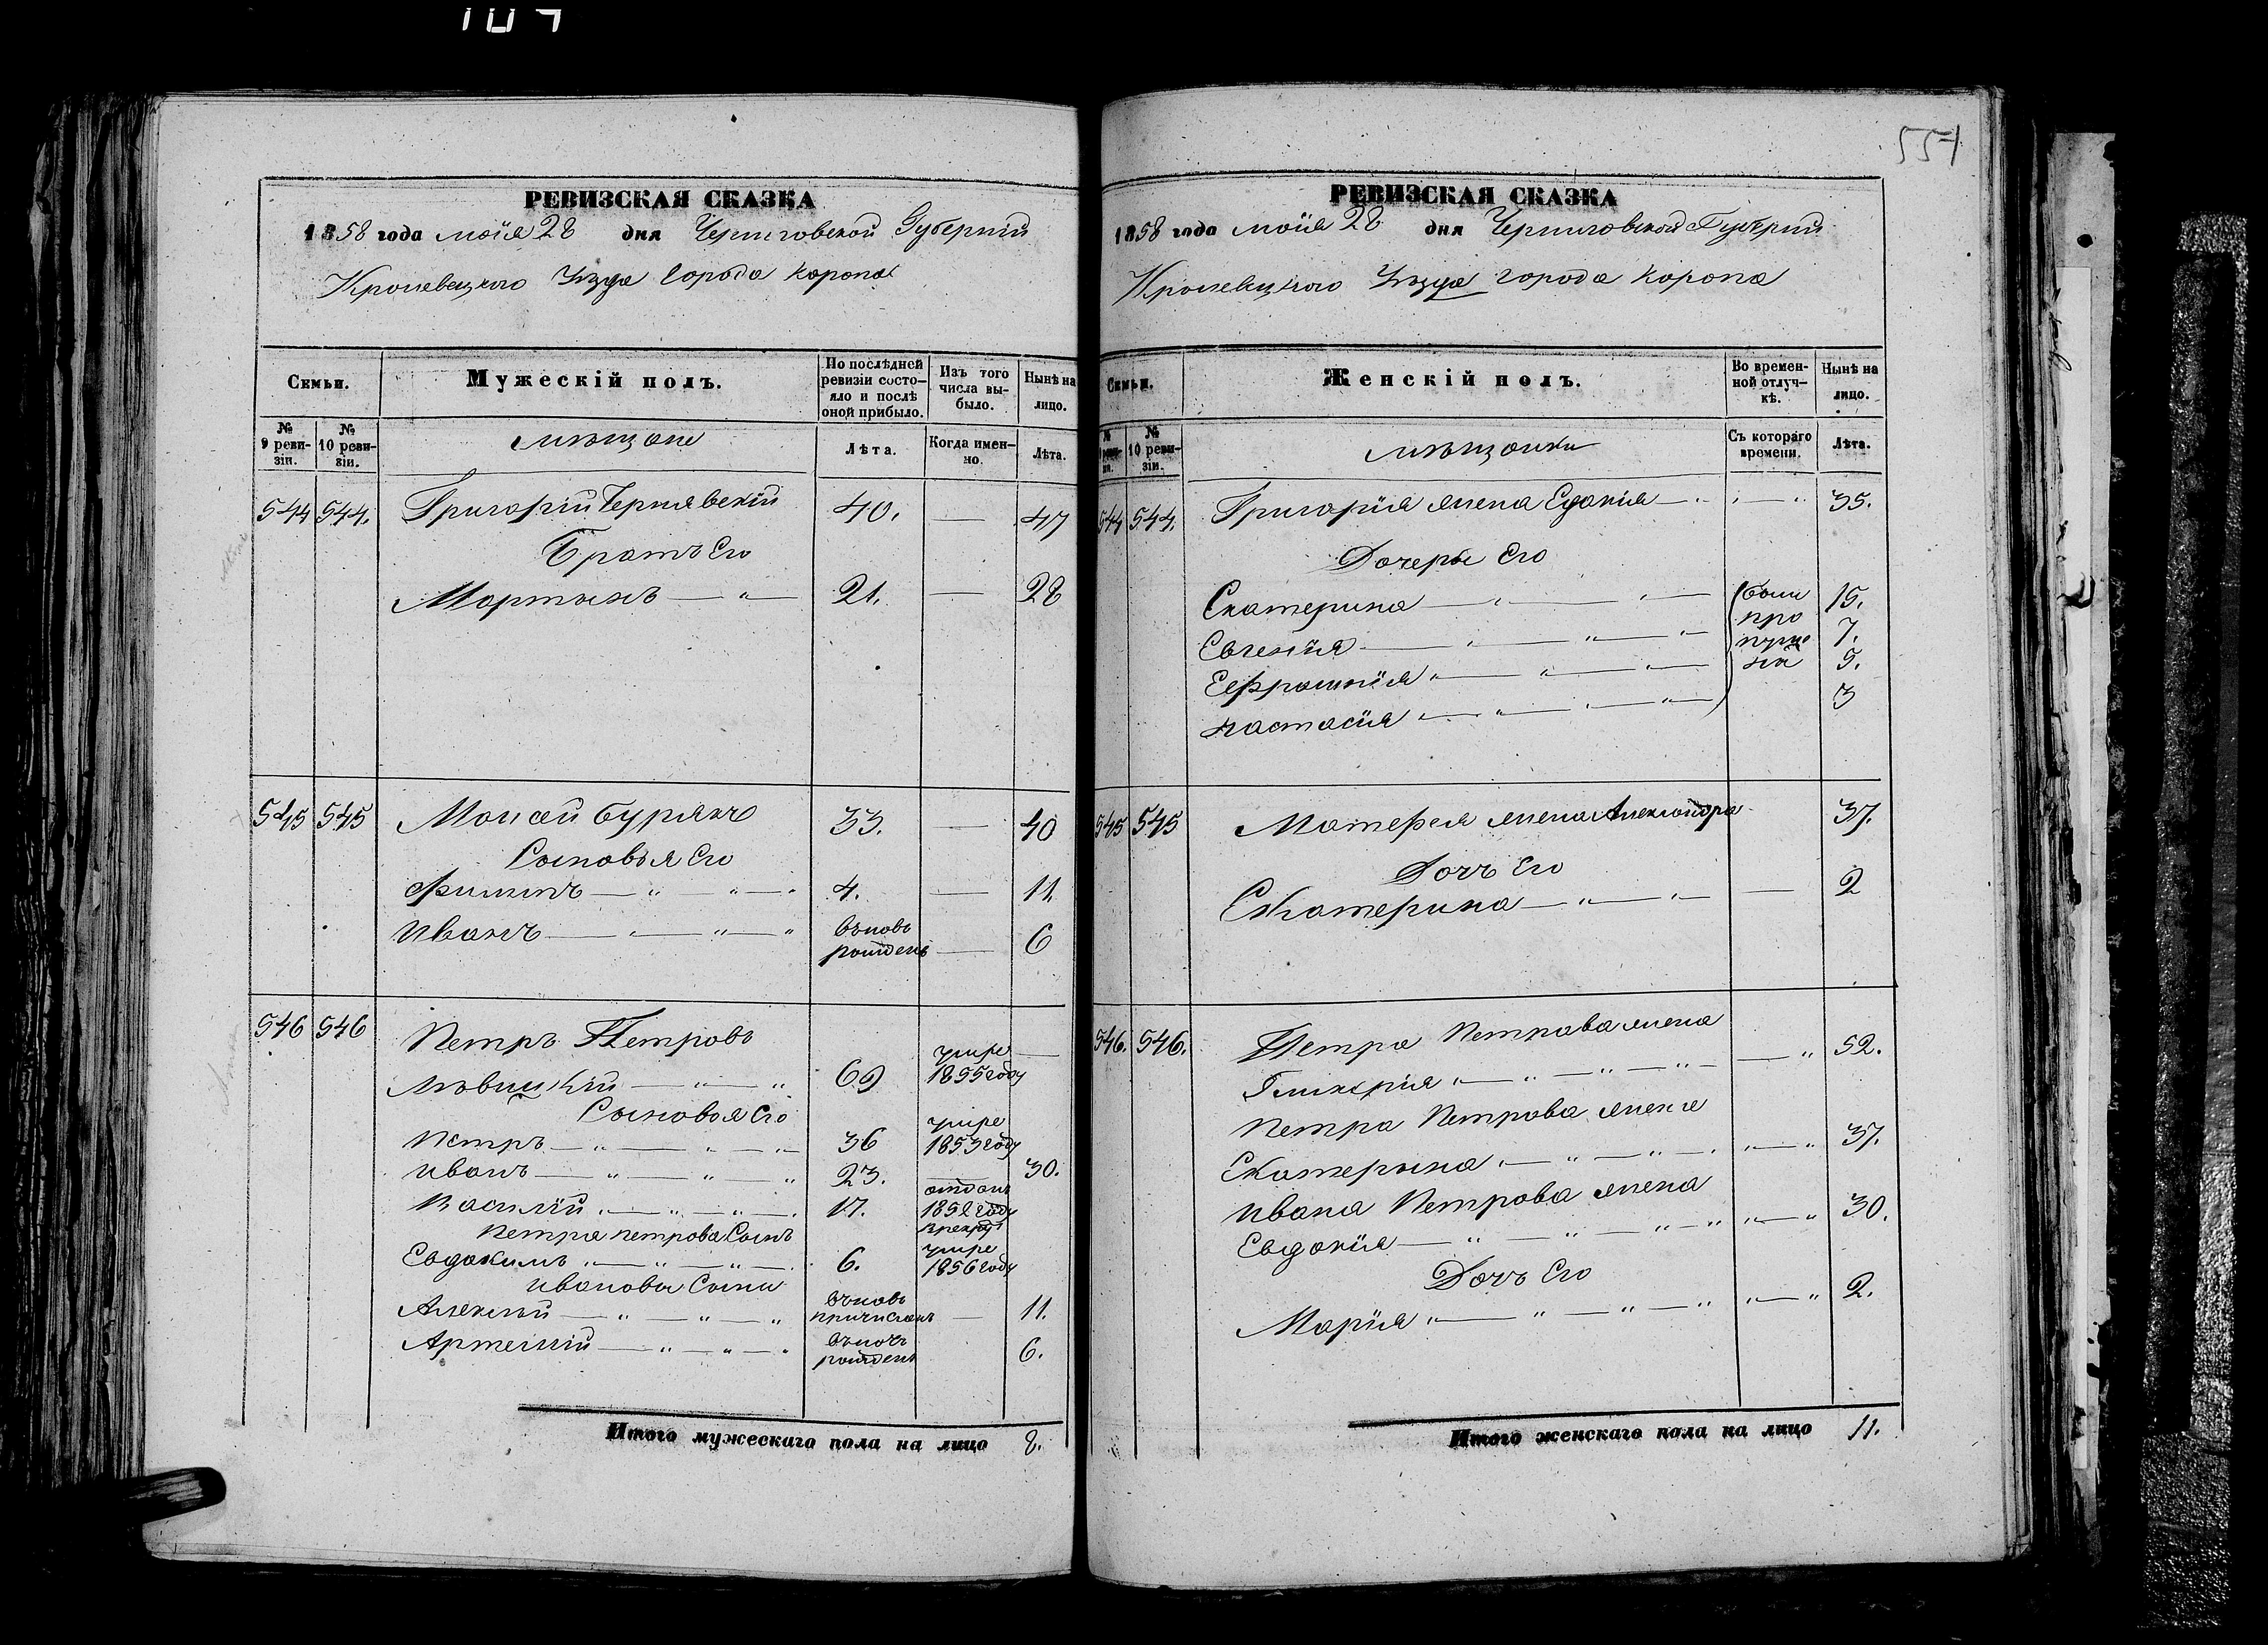 554
РЕВИЗСКАЯ СКАЗКА
1858 года мая 28 дня Черниговской Губернии
Кролевецкого Уезда города Коропа
Семьи. Мужескій полъ. По послѣдней ревизіи состояло и послѣ оной прибыло. Изъ того числа выбыло. Нынѣ на лицо.
№ 9 ревизіи. № 10 ревизіи. мещане Лѣта. Когда именно. Лѣта.
544 544. Григорій Чернявскій 40. — 47
Братъ Его
Мартынъ — " — 21. — 28
545 545 Моисей Бурякъ 33. — 40
Сыновья Его
Филипъ — " " — " 4. — 11.
Иванъ — " — " — " вновь рожденъ — 6
546 546 Петръ Петровъ
Лѣвицкій — " — " 69 умре 1855 году —
Сыновья Его
Петръ — " — " — " 36 умре 1853 году
Иванъ — " — " — " 23. — 30.
Василій " — " — " — " 17. отданъ 1852 году в рекру
Петра Петрова Сынъ
Евдокимъ " — " — " — 6. умре 1856 году
Ивановы Сыны
Алексей — " — " — " вновь причисленъ — 11.
Артемий — " — " — " вновь рожденъ 6.
Итого мужескаго пола на лицо 8.
РЕВИЗСКАЯ СКАЗКА
1858 года мая 28 дня Черниговской Губернии
Кролевецкого Уезда города Коропа
Семьи. Женскій полъ. Во временной отлучкѣ. Нынѣ на лицо.
№ 10 ревизіи. мещанки Съ котораго времени. Лѣта.
544 544. Григорія жена Едокія — " " — " 35.
Дочеры Его
Екатерина — " — " — были пропущены 15.
Евгенія — " — " — " 7.
Ефросинія " — " — " 5.
Настасія " — " — " — " 3
545 545 Матфея жена Александра 37.
Дочь Его
Екатерина — " — " — — 2
546. 546. Петра Петрова жена
Гликерія " — " — " — " — — " 52.
Петра Петрова жена
Екатерына " — " — " — " " — " 37.
Ивана Петрова жена
Евдокія — " — " — " — " " — " 30.
Дочь Его
Марія " — " — " — " " — " 2.
Итого женскаго пола на лицо 11.